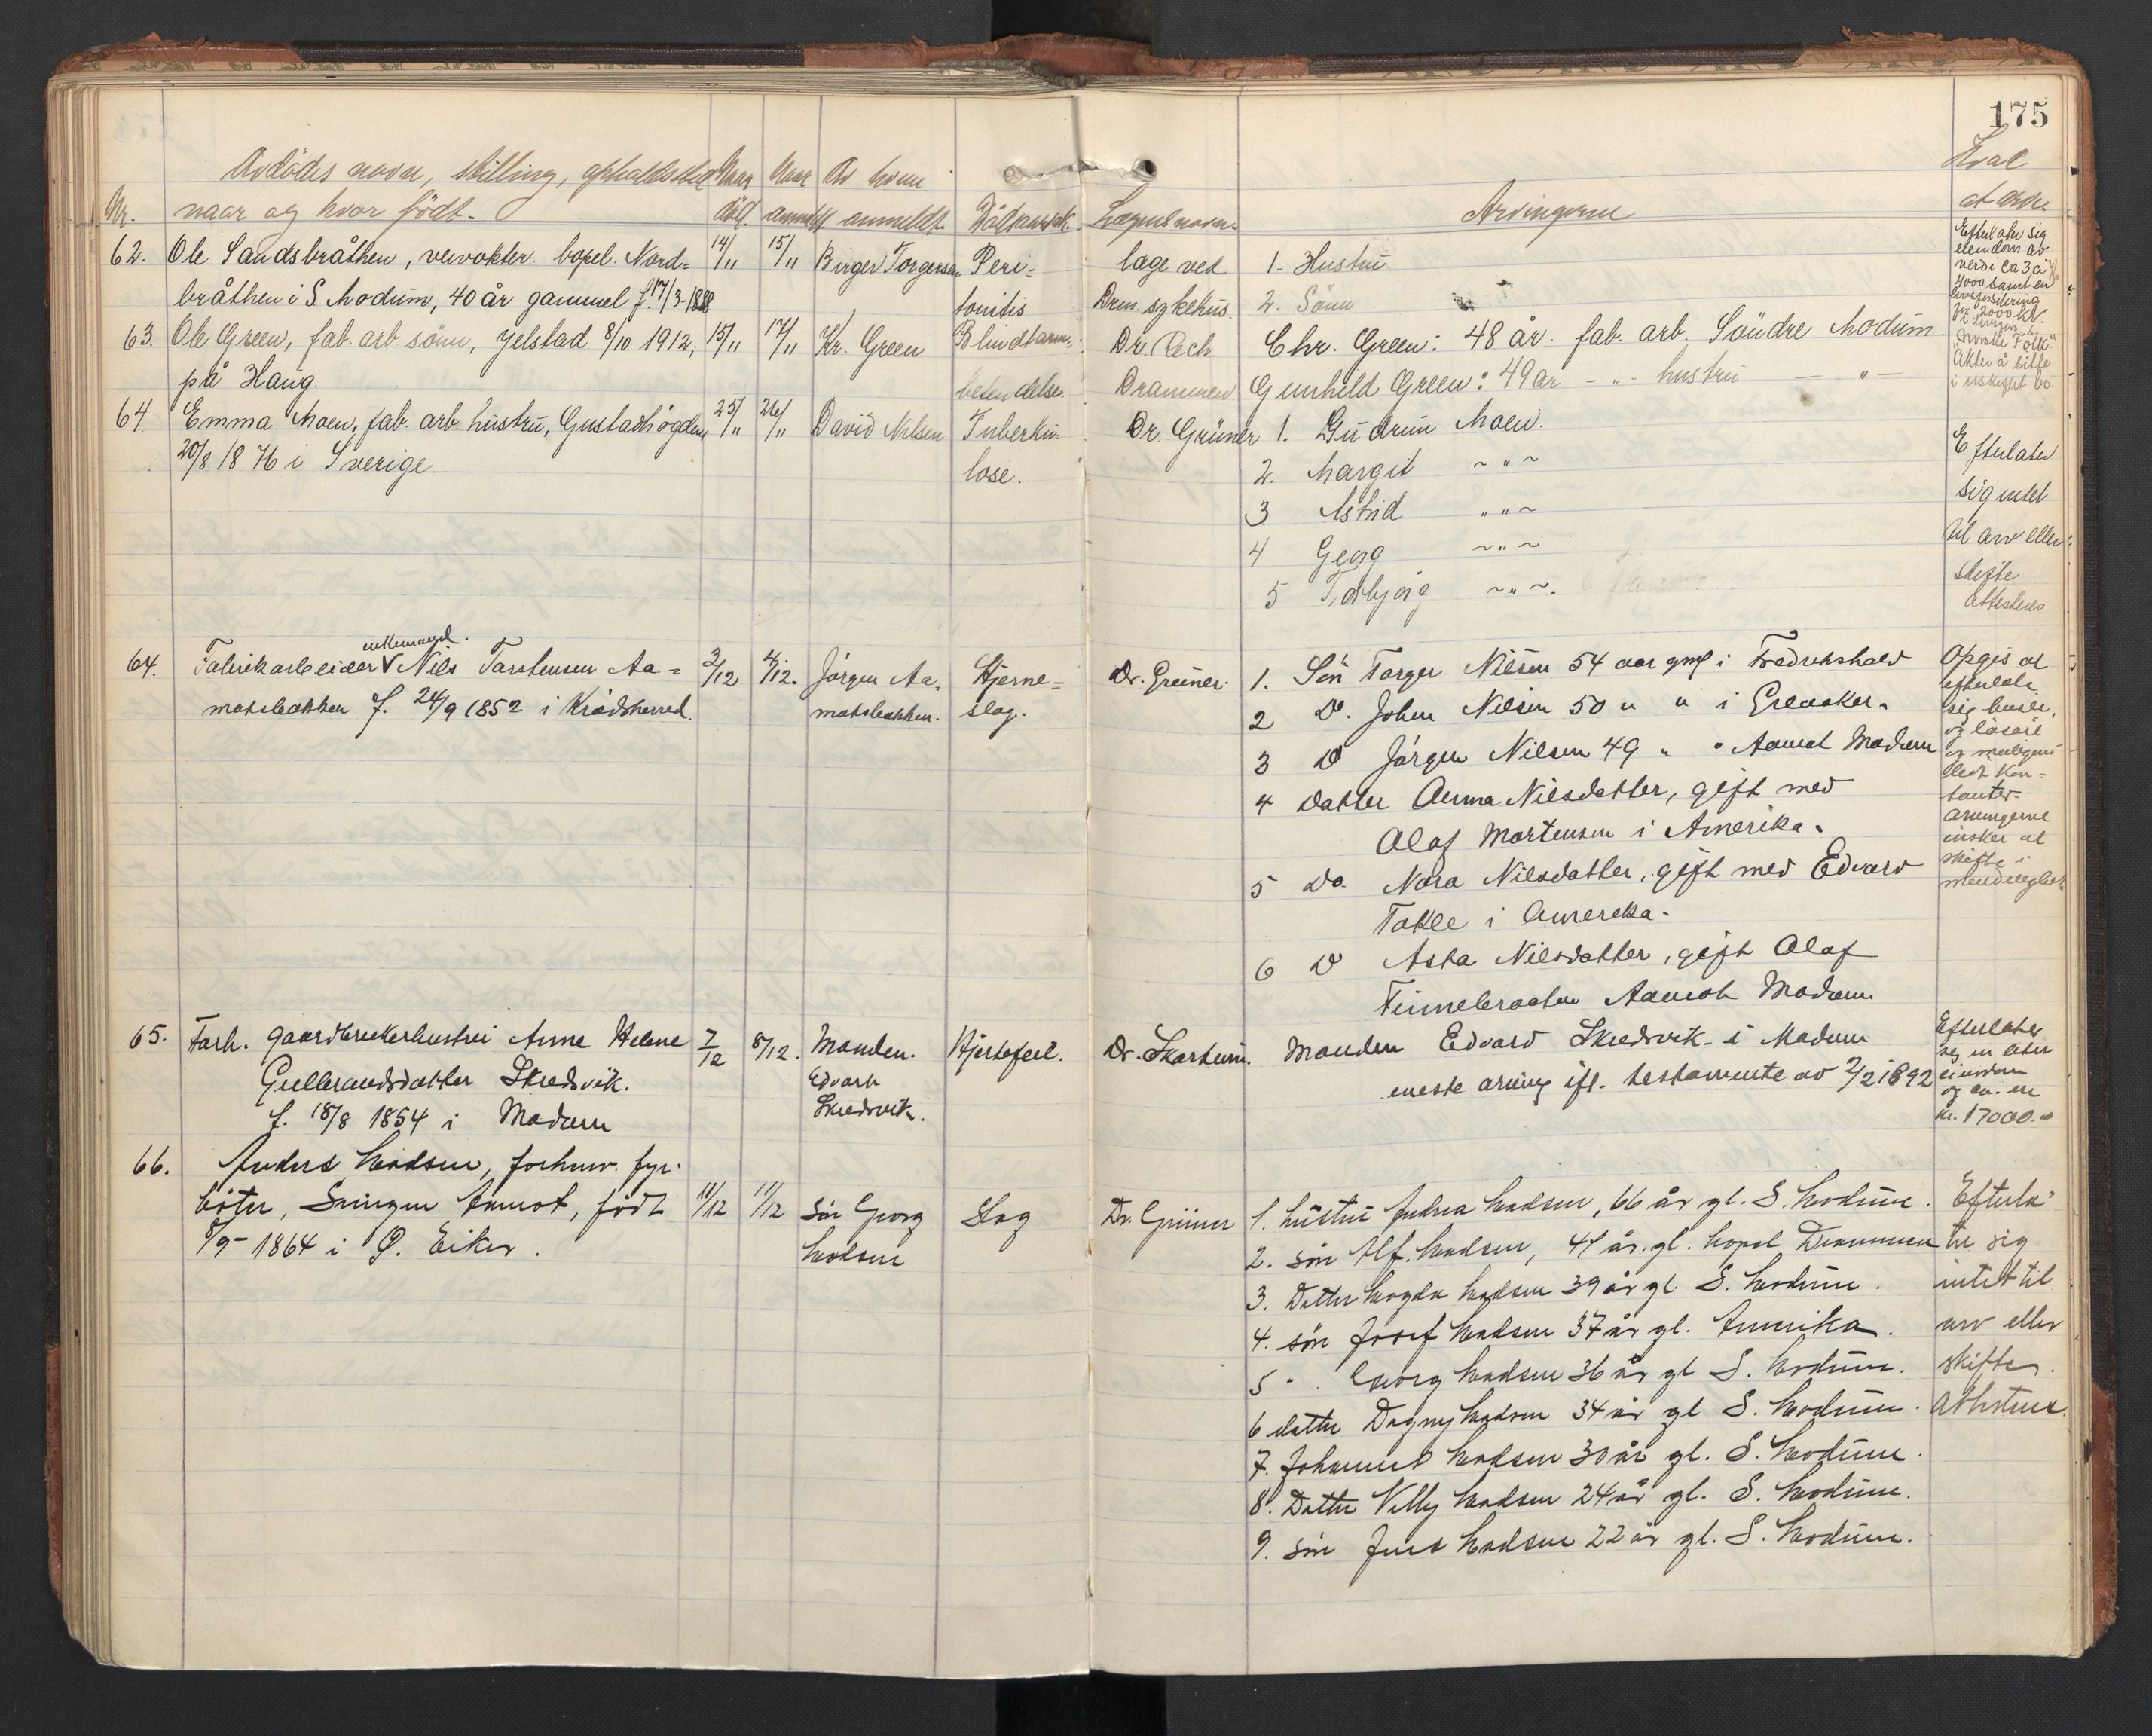 175
Avdödes navn, stilling, opholdssted Naar Naar Av hvem Hvad
Nr. naar og hvor födt. död. anmeldt anmeldt Dödsaarsak. Lægens navn. Arvingerne at arve
62. Ole Sandsbråthen, vevvokter. bopel. Nord= 14/11 15/11 Birger Torgersen Peri= lage ved 1. Hustru
bråthen i S Modum, 40 år gammel f. 17/3-1888 tonitis Drm. sykehus. 2. Sönn
Efterlater sig
eiendom av
verdi ca 3 à
4000 samt en
livsforsikring
2000 kr.
"Norske Folk".
i uskiftet bo
63. Ole Green, fab. arb sönn, Jelstad 8/10 1912, 15/11 17/11 Kr. Green Blindtarm= Dr. Chr. Green: 48 år. fab. arb. Söndre Modum.
på Haug. betendelse. Drammen. Gunhild Green: 49 år - " - hustru — " —
64. Emma Moen, fab. arb. hustru, Gustadhögden 25/11 26/11 David Nilsen Tuberku- Dr. Grüner 1. Gudrun Moen.
20/8 1876 i Sverige. lose. 2. Margit ~ " ~ Efterlater
3 Astrid " " ~ sig intet
4 Georg ~ " ~ til arv eller
5 Torbjörg ~ " ~. skifte
Attesteres
enkemand.
64. Fabrikarbeider V Nils Torstensen Aa= 3/12 4/12. Jörgen Aa= Hjerne= Dr. Grüner. 1. Sön Torger Nilsen 54 aar gml i Fredrikshald
motsbakken f. 24/9 1852 i Krödsherred. motsbakken. slag. 2 D. Johan Nilsen 50 " " i Greaaker.
3 D Jörgen Nilsen 49 " " Aamot Modum
4 Datter Anna Nilsdatter, gift med
Olaf Mortensen i Amerika.
5 Do. Nora Nilsdatter, gift med Edvard
Takle i Amerika.
6 D Asta Nilsdatter, gift Olaf
Finnebraaten Aamot Modum
Opgis at
efterlate
sig huse,
og lösöre
og muligens
litt kon=
tanter.
Arvingerne
önsker at
skifte i
mindelighet
65. Forh. gaardbrukerhustru Anne Helene 7/12 8/12. Manden. Hjertefeil. Dr. Skartum. Manden Edvard Skredsvik i Modum
Gulbrandsdatter Skredsvik. Edvard eneste arving ifl. testamente av 2/2 1892
f. 18/8 1854 i Modum Skredsvik.
Efterlater
sig en liten
eiendom
og ca. en
kr. 17000.-
66. Anders Madsen, forhenv. fyr-
böter, Svingen Aamot, födt 11/12 11/12 Sön Georg Slag Dr. Grüner 1. hustru Andrea Madsen, 66 år gl. S. Modum. Efterla=
8/9- 1864 i Ö. Eiker. Madsen 2. sön Alf. Madsen, 41 år. gl. bopel Drammen ter sig
3. Datter Magda Madsen 39 år gl. S. Modum. intet til
4. sön Josef Madsen 37 år gl. Amerika. arv eller
5 " Georg Madsen 36 år gl S. Modum. skifte.
6 datter Dagny Madsen 34 år gl S. Modum. Attesteres.
7. Johannes Madsen 30 år gl. S. Modum.
8. Datter Villy Madsen 24 år gl. S. Modum.
9. sön Jens Madsen 22 år gl. S. Modum.